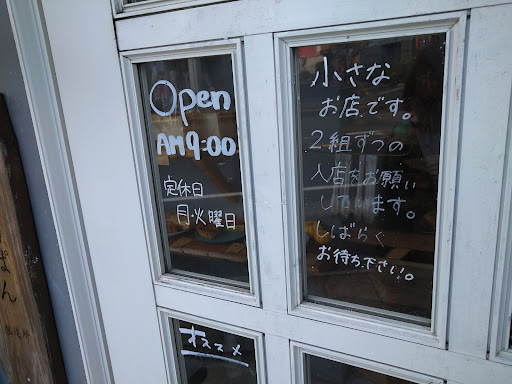 Open
AM9:00
定休日
月・火曜日
小さな
お店です。
2組ずつの
入店をお願い
しています。
しばらく
お待ち下さい。
オススメ